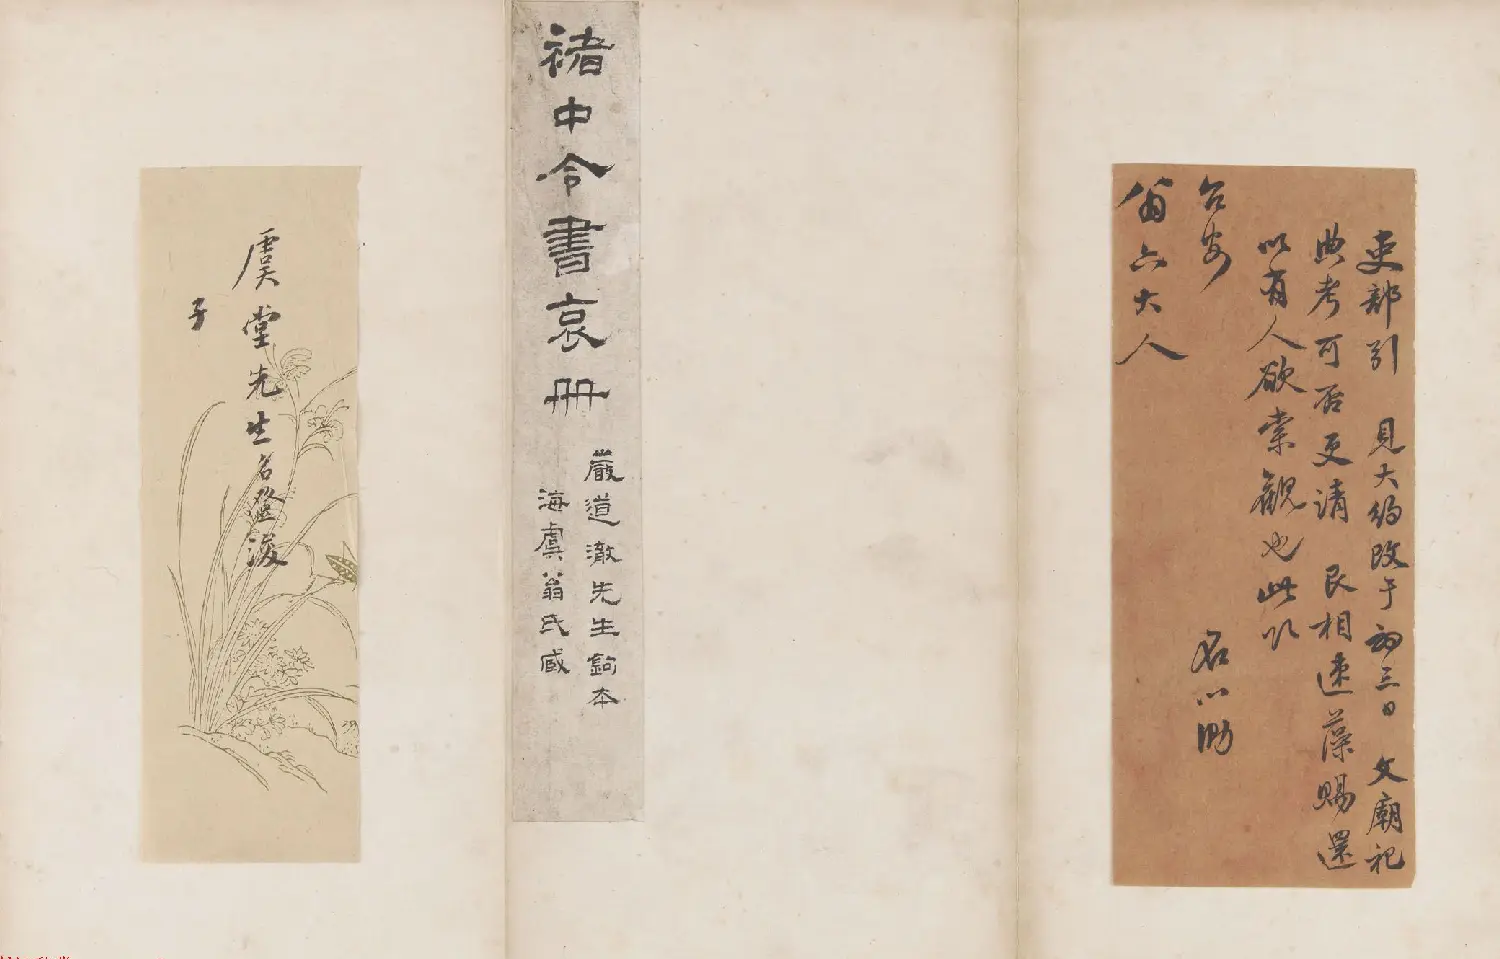 吏部引 見大約改于初三日 文廟祀
典考可否更請 艮相速藻賜還
以有人欲索觀也此叩
台安
名心泐
翁六大人
褚中令書哀册
嚴道澈先生鉤本
海虞翁氏臧
虞堂先生名澄浚
子